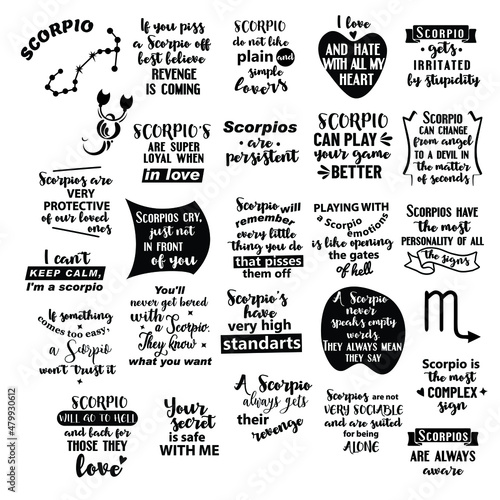 SCORPIO
If you piss
a Scorpio off
best believe
REVENGE
IS COMING
SCORPIO
do not like
plain and
simple
lovers
I love
AND HATE
WITH ALL MY
HEART
SCORPIO
gets
IRRITATED
by stupidity
SCORPIO'S
ARE SUPER
LOYAL WHEN
in love
Scorpios
are
persistent
SCORPIO
CAN PLAY
your game
BETTER
SCORPIO
CAN CHANGE
from angel
TO A DEVIL IN
the matter
of seconds
Scorpios are
VERY
PROTECTIVE
of our loved
ones
SCORPIOS CRY,
just not
IN FRONT
of you
Scorpio will
remember
every little
thing you do
that pisses
them off
PLAYING WITH
a Scorpio
emotions
is like opening
the gates
of hell
SCORPIOS HAVE
the most
PERSONALITY OF ALL
the signs
I can't
KEEP CALM,
I'm a scorpio
You'll
never get bored
with
a Scorpio.
They know
what you want
Scorpio's
have
very high
standarts
A Scorpio
never
speaks empty
words.
THEY ALWAYS MEAN
THEY SAY
If something
comes too easy,
a Scorpio
won't trust it
Scorpio is
the most
COMPLEX
sign
SCORPIO
WILL GO TO HELL
and back for
THOSE THEY
love
Your
secret
is safe
WITH ME
A Scorpio
always gets
their
revenge
Scorpios are not
VERY SOCIABLE
and are suited
for being
ALONE
SCORPIOS
ARE ALWAYS
aware
Adobe Stock | #479930612